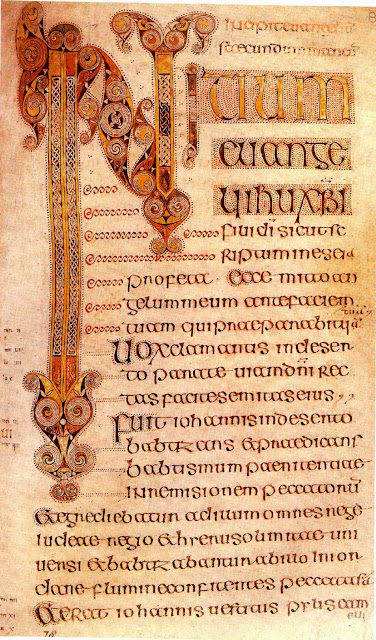 Incipit euangeliū
secundum
INITIUM
euange
lii ihu xpi
fili di sicut sc
riptum in esaia
profeta · ecce mitto an
gelum meum ante faciem
tuam qui praeparabit uiā tuā
Uox clamantis in deser
to parate uiam dñi rec
tas facite semitas eius ,,
Fuit iohannis in deserto
babtizans & praedicans
babtismum paenitentiae
in remisionem peccatorū
& egrediebatur ad illum omnes
iudeae regio & hierusolimitae uni
uersi & babtizabantur ab illo in ior
dane flumine confitentes peccata sua
& erat iohannis uestitus pylis cam
eli